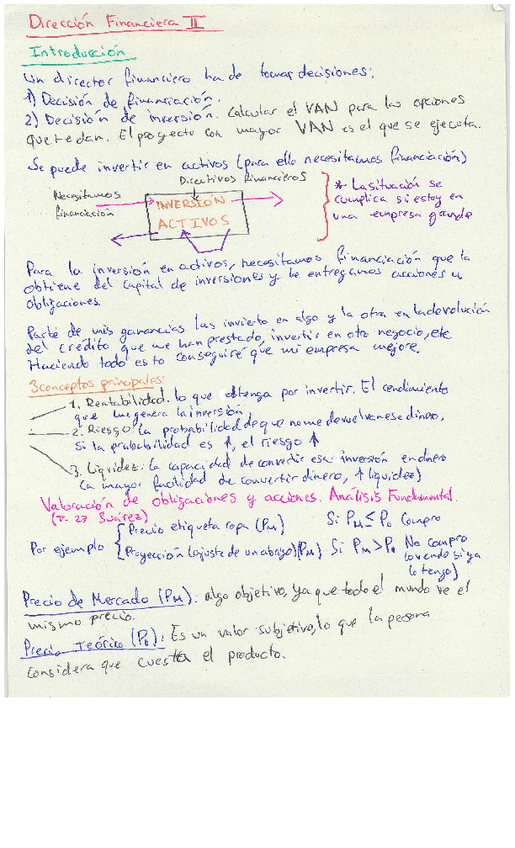 Dirección Financiera II
Introducción
Un director financiero ha de tomar decisiones:
1) Decisión de financiación.
2) Decisión de inversión. Calcular el VAN para las opciones
que te dan. El proyecto con mayor VAN es el que se ejecuta.
Se puede invertir en activos (para ello necesitamos financiación)
Directivos financieros
Necesitamos
financiación
INVERSIÓN
ACTIVOS
* La situación se
complica si estoy en
una empresa grande
Para la inversión en activos, necesitamos financiación que la
obtiene del capital de inversiones y le entregamos acciones u
obligaciones.
Parte de mis ganancias las invierto en algo y la otra en la devolución
del crédito que me han prestado, invertir en otro negocio, etc
Haciendo todo esto conseguiré que mi empresa mejore.
3 conceptos principales:
1. Rentabilidad: lo que obtenga por invertir. El rendimiento
que me genera la inversión
2. Riesgo: la probabilidad de que no me devuelvan ese dinero,
Si la probabilidad es ↑, el riesgo ↑
3. Liquidez: la capacidad de convertir esa inversión en dinero
(a mayor facilidad de convertir dinero, ↑ liquidez)
Valoración de obligaciones y acciones. Análisis Fundamental.
(T-27 Suárez)
Por ejemplo { Precio etiqueta ropa (PM) Si PM ≤ P0 Compro
Proyección (ajuste de un abrigo) (PM) Si PM > P0 No compro
(o vendo si ya
lo tengo)
Precio de Mercado (PM): algo objetivo, ya que todo el mundo ve el
mismo precio.
Precio Teórico (P0): Es un valor subjetivo, lo que la persona
considera que cuesta el producto.